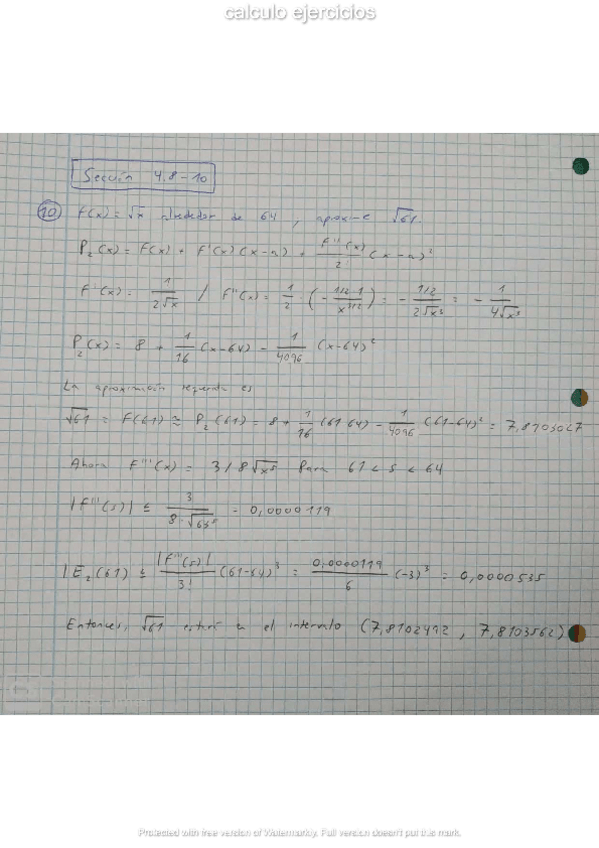 calculo ejercicios
Sección 4.8-10
10 F(x) = √x alrededor de 64, aproxime √61.
P₂(x) = F(x) + F'(x)(x-a) + F''(x)/2! (x-a)²
F'(x) = 1/(2√x) / F''(x) = 1/2 · (- 1/2·1/x^(3/2)) = - (1/2)/(2√x³) = - 1/(4√x³)
P₂(x) = 8 + 1/16 (x-64) - 1/4096 (x-64)²
La aproximación requerida es
√61 = F(61) ≅ P₂(61) = 8 + 1/16 (61-64) - 1/4096 (61-64)² = 7,8103027
Ahora F'''(x) = 3/8√x⁵ Para 61 < s < 64
|F'''(s)| ≤ 3/(8·√61⁵) = 0,0000119
|E₂(61) ≤ |F'''(s)|/3! (61-64)³ = 0,0000119/6 (-3)³ = 0,0000535
Entonces, √61 estará en el intervalo (7,8102492, 7,8103562)
Protected with free version of Watermarkly. Full version doesn't put this mark.